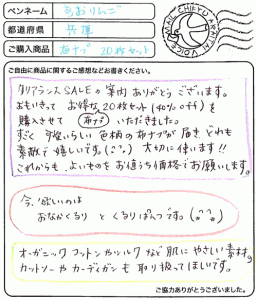 ペンネーム あおりんご
都道府県 兵庫
ご購入商品 布ナプ 20枚セット
MAIL CHIKYU ARATAI VOICE
ご自由に商品に関するご感想などお書きください。
クリアランスSALEの案内ありがとうございます。
おもいきって お得な20枚セット(40%off)を
購入させて いただきました。
布ナプ
すごく かわいらしい 色柄の布ナプが届き どれも
素敵で嬉しいです。(^-^) 大切に使います!!
これからも、よいものをお値うち価格でお願いします。
今、欲しいのは
おなかくるり と くるりぱんつです。(^-^)
オーガニックコットンやシルクなど肌にやさしい素材。
カットソーやカーディガンも取り扱ってほしいです。
ご協力ありがとうございました。